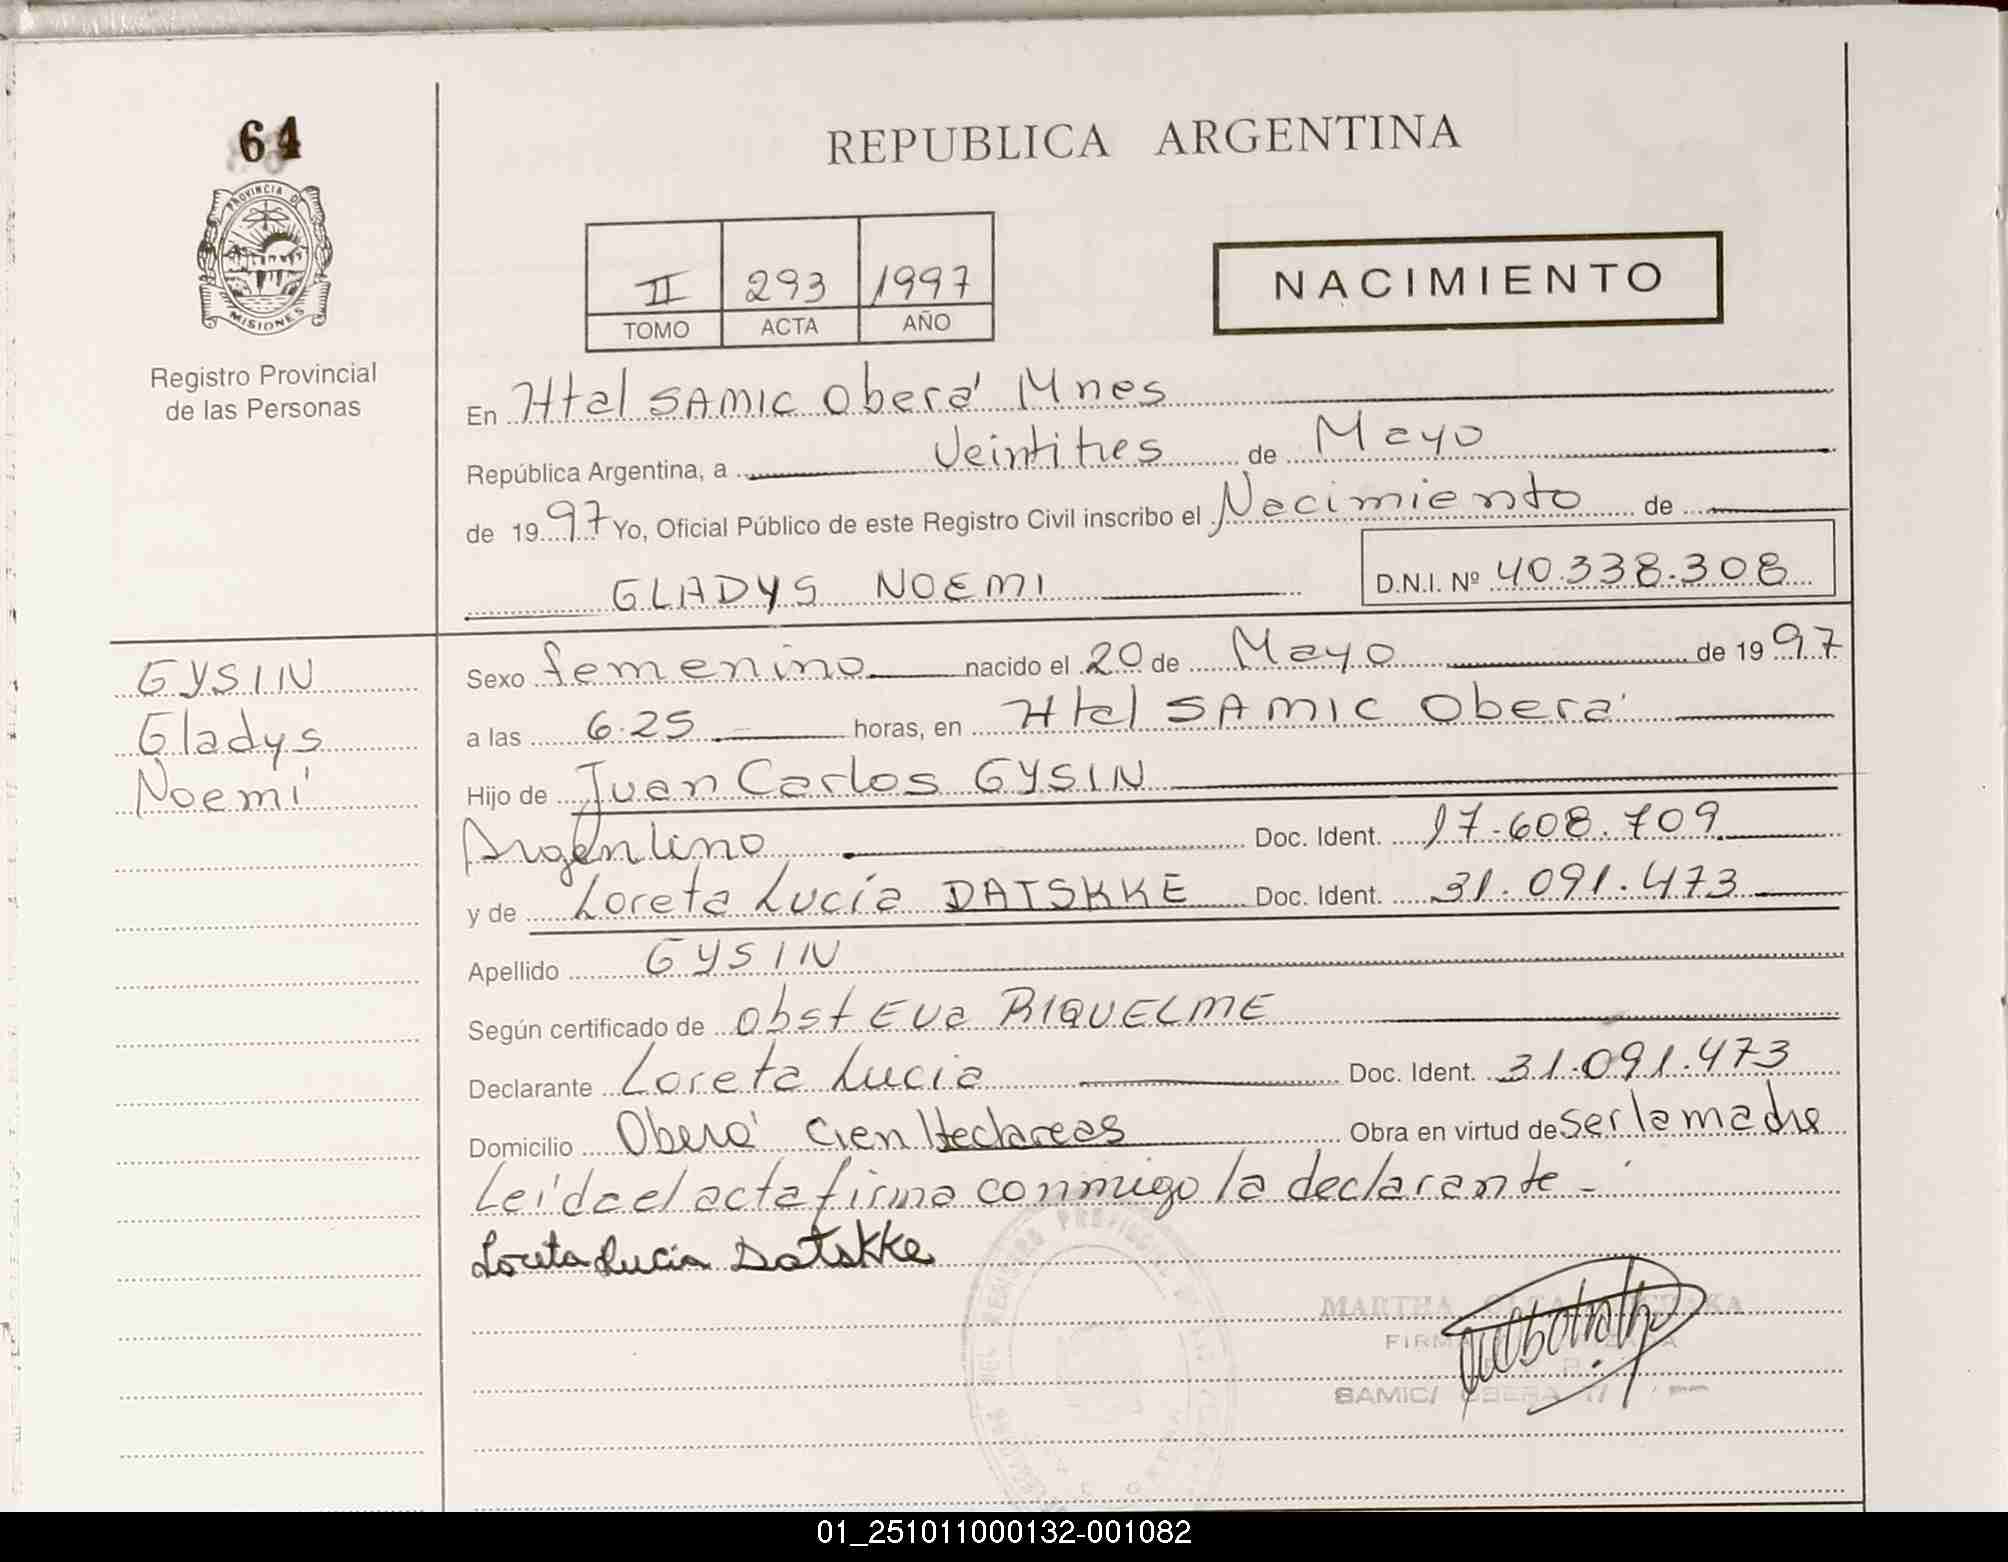 64
PROVINCIA DE
MISIONES
Registro Provincial
de las Personas
REPUBLICA ARGENTINA
II 293 1997
TOMO ACTA AÑO
NACIMIENTO
En Htal SAMIC Oberá Mnes
República Argentina, a Veintitres de Mayo
de 1997 Yo, Oficial Público de este Registro Civil inscribo el Nacimiento de
GLADYS NOEMI D.N.I. Nº 40.338.308
GYSIN
Gladys
Noemí
Sexo femenino nacido el 20 de Mayo de 1997
a las 6.25 horas, en Htal SAMIC Oberá
Hijo de Juan Carlos GYSIN
Argentino Doc. Ident. 17.608.709
y de Loreta Lucía DATSKKE Doc. Ident. 31.091.473
Apellido GYSIN
Según certificado de Obst Eva RIQUELME
Declarante Loreta Lucia Doc. Ident. 31.091.473
Domicilio Oberá Cien Hectareas Obra en virtud de ser la madre
Leída el acta firma conmigo la declarante -
Loreta Lucia Datskke
MARTHA
SAMIC/ OBERA
01_251011000132-001082